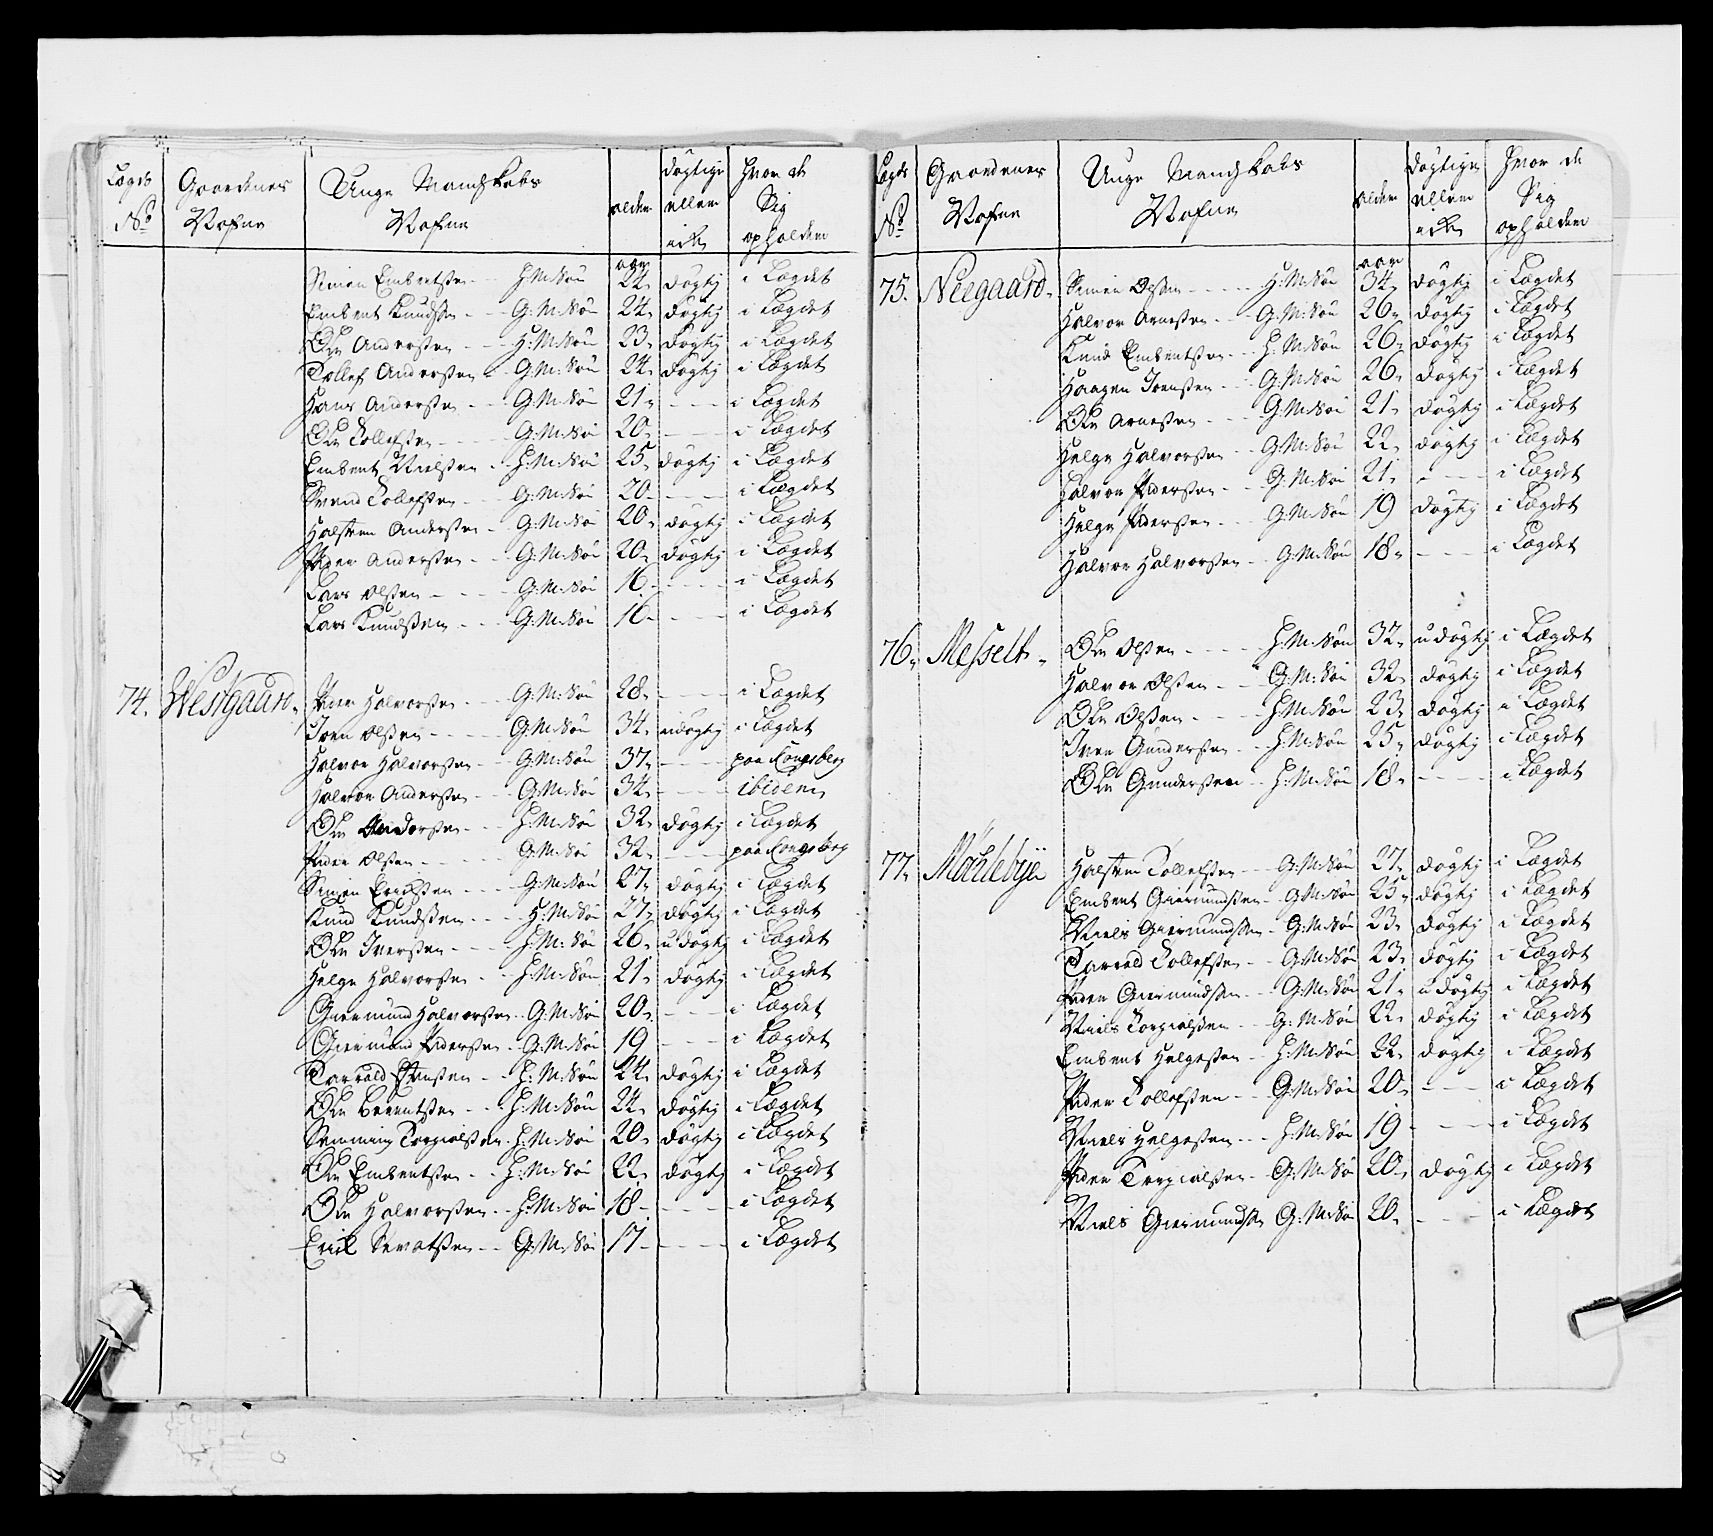 Lægds No Gaardenes Nafne Unge Mandskabs Nafne alder dygtige ellem icke hvor de Sig opholder
aar
Simen Embretsen - - H:M:Søn 22, dygtig i Lægdet
Embret Knudsen - - G:M:Søn 24, dygtig i Lægdet
Ole Andersen - - - H:M:Søn 23, dygtig i Lægdet
Tollef Andersen - G:M:Søn 24, dygtig i Lægdet
Hans Andersen - - G:M:Søn 21, - - - i Lægdet
Ole Tollefsen - - - G:M:Søn 20, - - - i Lægdet
Embret Nielsen - - H:M:Søn 25, dygtig i Lægdet
Svend Tollefsen - - G:M:Søn 20, - - - i Lægdet
Halsten Andersen - G:M:Søn 20, dygtig i Lægdet
Peder Andersen - - G:M:Søn 20, dygtig i Lægdet
Lars Olsen - - - - G:M:Søn 16 - - - - i Lægdet
Lars Knudsen - - - G:M:Søn 16 - - - - i Lægdet
74. Westgaard, Peder Halvorsen - - G:M:Søn 28, - - - i Lægdet
Iver Olsen - - - - G:M:Søn 34, udygtig i Lægdet
Halvor Halvorsen - - G:M:Søn 37, - - - paa Kongsberg
Halvor Andersen - - G:M:Søn 34, - - - ibidem
Ole Andersen - - - H:M:Søn 32, dygtig i Lægdet
Peder Olsen - - - - G:M:Søn 32, - - - paa Kongsberg
Simen Ericksen - - - G:M:Søn 27, dygtig i Lægdet
Knud Knudsen - - - H:M:Søn 27, dygtig i Lægdet
Ole Iversen - - - H:M:Søn 26, udygtig i Lægdet
Helge Halvorsen - - H:M:Søn 21, dygtig i Lægdet
Giermund Halvorsen - G:M:Søn 20, - - - i Lægdet
Giermund Pedersen - G:M:Søn 19 - - - i Lægdet
Tarrald - - H:M:Søn 24, dygtig i Lægdet
Ole Berentsen - - H:M:Søn 24, dygtig i Lægdet
Semming Torgielsen - H:M:Søn 20, dygtig i Lægdet
Ole Embretsen - - H:M:Søn 22, dygtig i Lægdet
Ole Halvorsen - - H:M:Søn 18 - - - - i Lægdet
Erick - - G:M:Søn 17 - - - - i Lægdet
Lægds No Gaardenes Nafne Unge Mandskabs Nafne alder dygtige ellem icke hvor de Sig opholder
aar
75. Neegaard, Simen Olsen - - - - H:M:Søn 34, dygtig i Lægdet
Halvor Arnesen - - G:M:Søn 26, dygtig i Lægdet
Knud Embretsen - - H:M:Søn 26, dygtig i Lægdet
Haagen Iversen - - G:M:Søn 26, dygtig i Lægdet
Ole Arnesen - - - G:M:Søn 21, dygtig i Lægdet
Helge Halvorsen - - G:M:Søn 22, dygtig i Lægdet
Halvor Pedersen - - G:M:Søn 21, - - - i Lægdet
Helge Pedersen - - G:M:Søn 19 dygtig i Lægdet
Halvor Halvorsen - G:M:Søn 18, - - - i Lægdet
76, Messelt, Ole Olsen - - - - H:M:Søn 32, udygtig i Lægdet
Halvor Olsen - - G:M:Søn 32, dygtig i Lægdet
Ole Olsen - - - - H:M:Søn 23, dygtig i Lægdet
Iver Gundersen - - H:M:Søn 25, dygtig i Lægdet
Ole Gundersen - - H:M:Søn 18, - - - i Lægdet
77, Mørlebye Halsten Tollefsen - - G:M:Søn 27, dygtig i Lægdet
Embret Giermundsen - G:M:Søn 25, dygtig i Lægdet
Niels Giermundsen - G:M:Søn 23, dygtig i Lægdet
Tarrald Tollefsen - - G:M:Søn 23, dygtig i Lægdet
Peder Giermundsen - G:M:Søn 21, udygtig i Lægdet
Niels Torgielsen - - G:M:Søn 22, dygtig i Lægdet
Embret Helgesen - - H:M:Søn 22, dygtig i Lægdet
Peder Tollefsen - - G:M:Søn 20, - - - i Lægdet
Niels Helgesen - - H:M:Søn 19 - - - i Lægdet
Peder Torgielsen - G:M:Søn 20, dygtig i Lægdet
Niels Giermundsen G:M:Søn 20, - - - i Lægdet